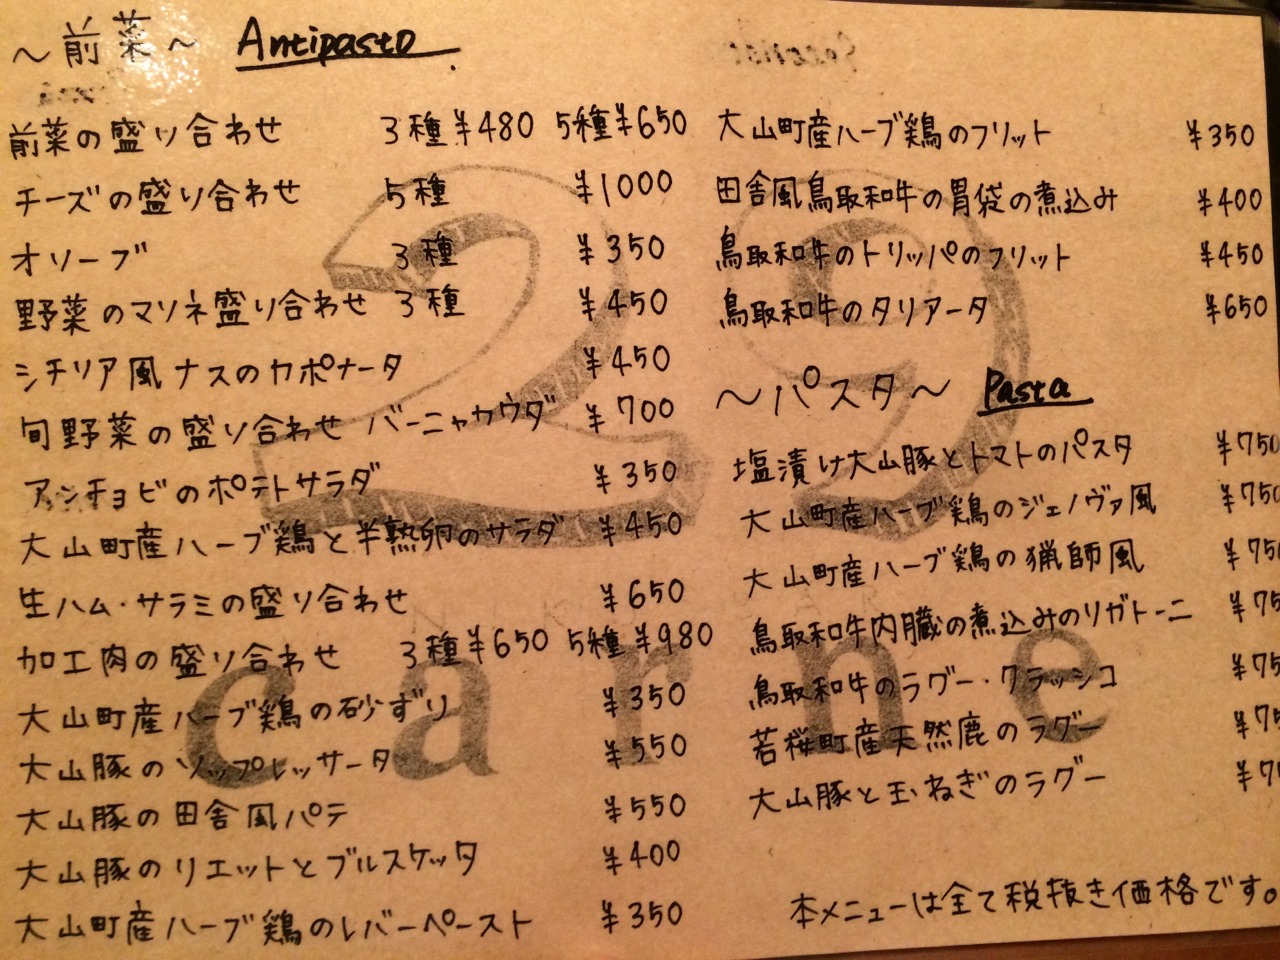 ～前菜～ Antipasto
前菜の盛り合わせ 3種¥480 5種¥650
チーズの盛り合わせ 5種 ¥1000
オリーブ 3種 ¥350
野菜のマリネ盛り合わせ 3種 ¥450
シチリア風ナスのカポナータ ¥450
旬野菜の盛り合わせ バーニャカウダ ¥700
アンチョビのポテトサラダ ¥350
大山町産ハーブ鶏と半熟卵のサラダ ¥450
生ハム・サラミの盛り合わせ ¥650
加工肉の盛り合わせ 3種¥650 5種¥980
大山町産ハーブ鶏の砂ずり ¥350
大山豚のソップレッサータ ¥550
大山豚の田舎風パテ ¥550
大山豚のリエットとブルスケッタ ¥400
大山町産ハーブ鶏のレバーペースト ¥350
大山町産ハーブ鶏のフリット ¥350
田舎風鳥取和牛の胃袋の煮込み ¥400
鳥取和牛のトリッパのフリット ¥450
鳥取和牛のタリアータ ¥650
～パスタ～ Pasta
塩漬け大山豚とトマトのパスタ ¥750
大山町産ハーブ鶏のジェノヴァ風 ¥750
大山町産ハーブ鶏の猟師風 ¥750
鳥取和牛内臓の煮込みのリガトーニ ¥75
鳥取和牛のラグー・クラッシコ ¥75
若桜町産天然鹿のラグー ¥75
大山豚と玉ねぎのラグー ¥7
本メニューは全て税抜き価格です。
29
carne